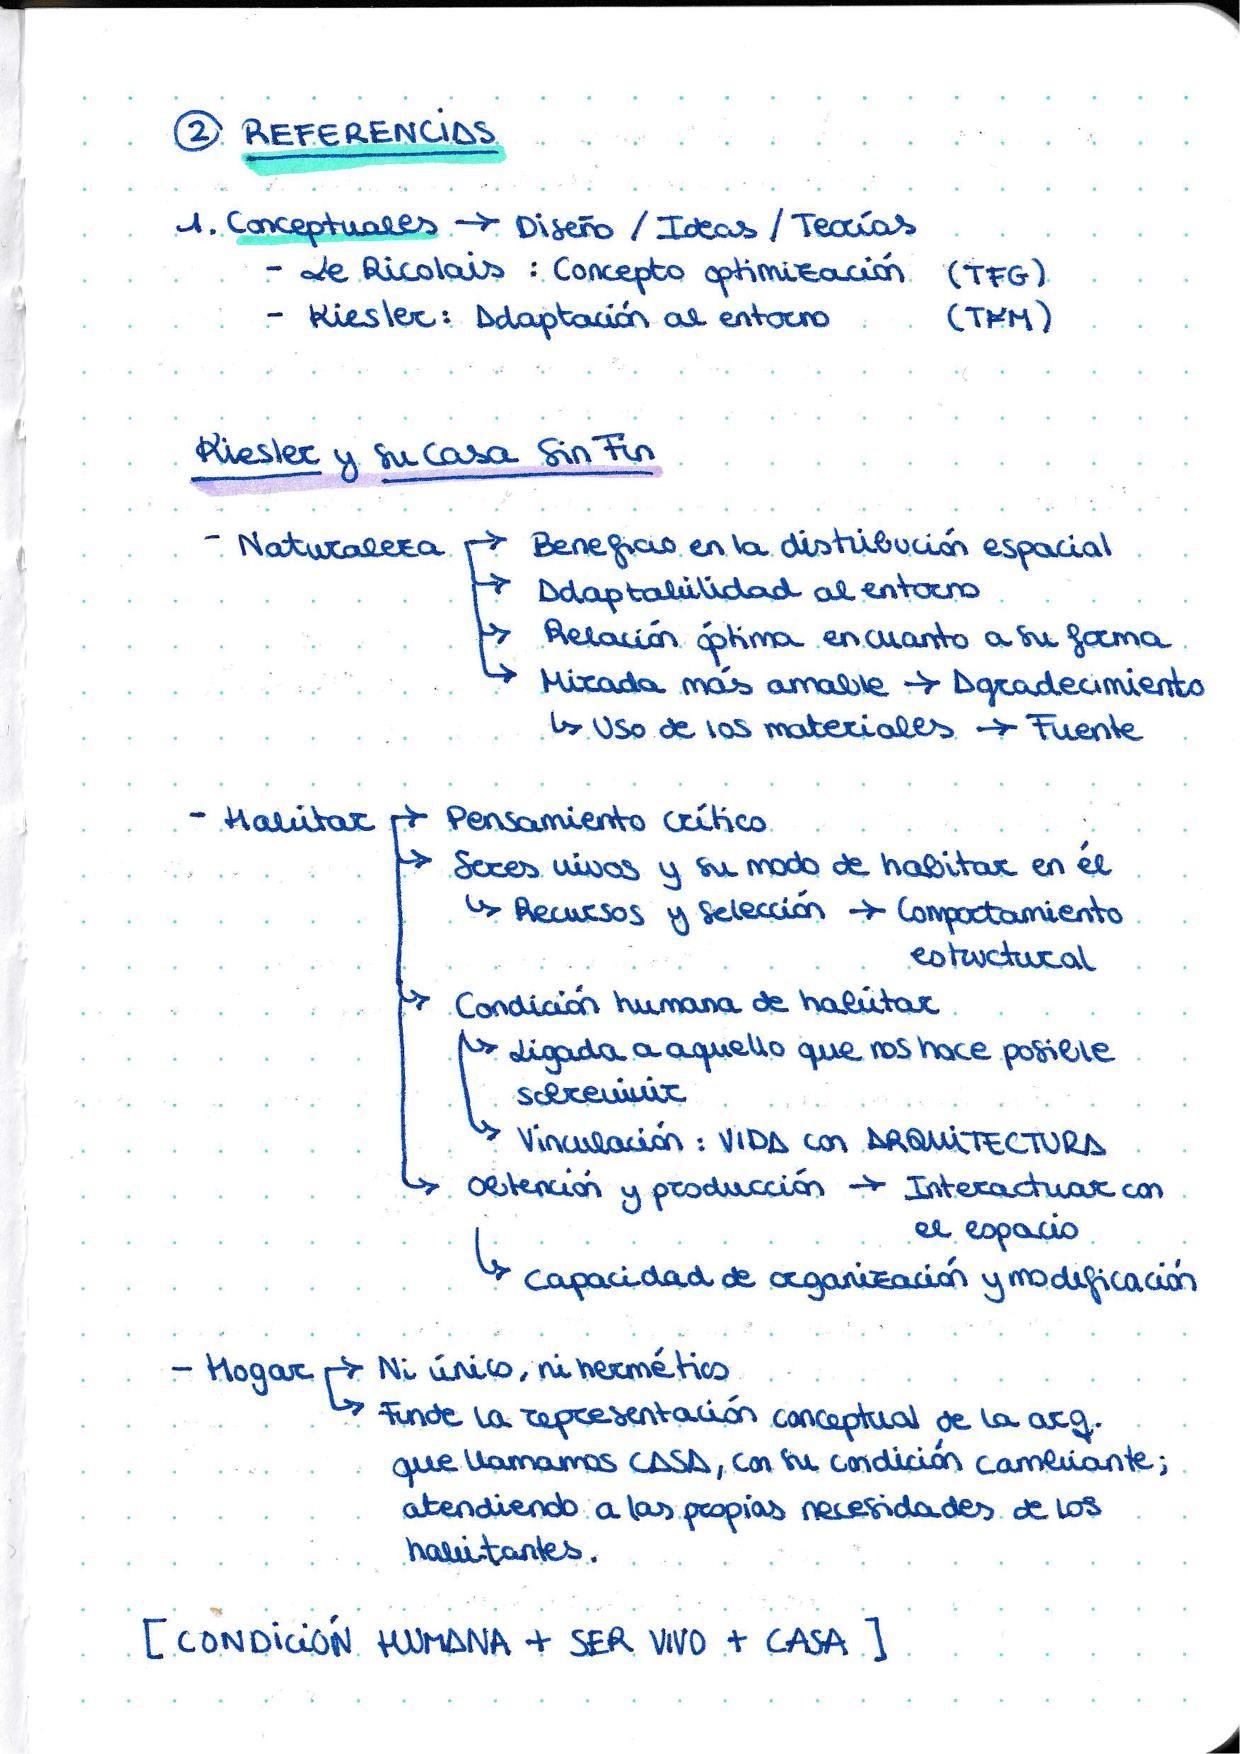 ② REFERENCIAS
1. Conceptuales → Diseño / Ideas / Teorías
- Le Ricolais : Concepto optimización (TFG)
- Kiesler : Adaptación al entorno (TFM)
Kiesler y su Casa Sin Fin
- Naturaleza → Beneficio en la distribución espacial
→ Adaptabilidad al entorno
→ Relación óptima en cuanto a su forma
→ Mirada más amable → Agradecimiento
↳ Uso de los materiales → Fuente
- Habitar → Pensamiento crítico
→ Seres vivos y su modo de habitar en él
↳ Recursos y selección → Comportamiento
estructural
→ Condición humana de habitar
↳ Ligada a aquello que nos hace posible
sobrevivir
↳ Vinculación : VIDA con ARQUITECTURA
↳ Obtención y producción → Interactuar con
el espacio
↳ Capacidad de organización y modificación
- Hogar → Ni único, ni hermético
↳ Funde la representación conceptual de la arq.
que llamamos CASA, con su condición cambiante;
atendiendo a las propias necesidades de los
habitantes.
[CONDICIÓN HUMANA + SER VIVO + CASA]